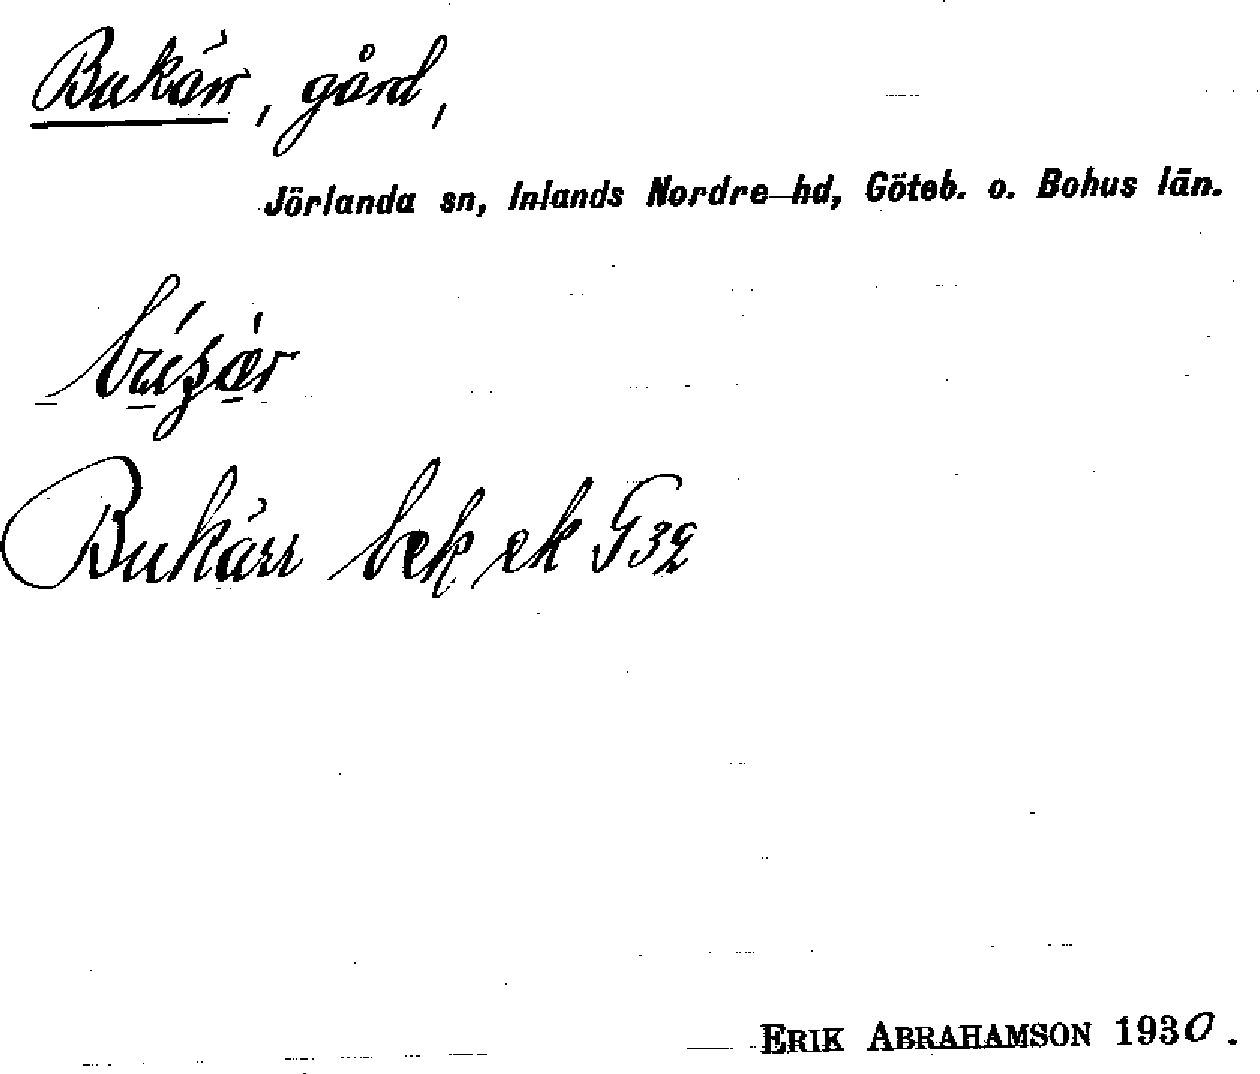 Bukärr, gård,
Jörlanda sn, Inlands Nordre hd, Göteb. o. Bohus län.
Bukärr bek ek G32
ERIK ABRAHAMSON 1930.